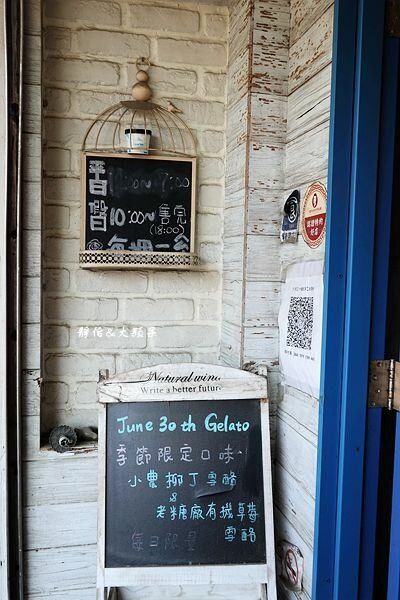 平日 10:00~17:00
假日 10:00~售完
(18:00)
每週一公
靜怡&大顆呆
Natural wind
Write a better future
June 30th Gelato
季節限定口味
小農柳丁雪酪
&
老糖廠有機草莓
雪酪
每日限量